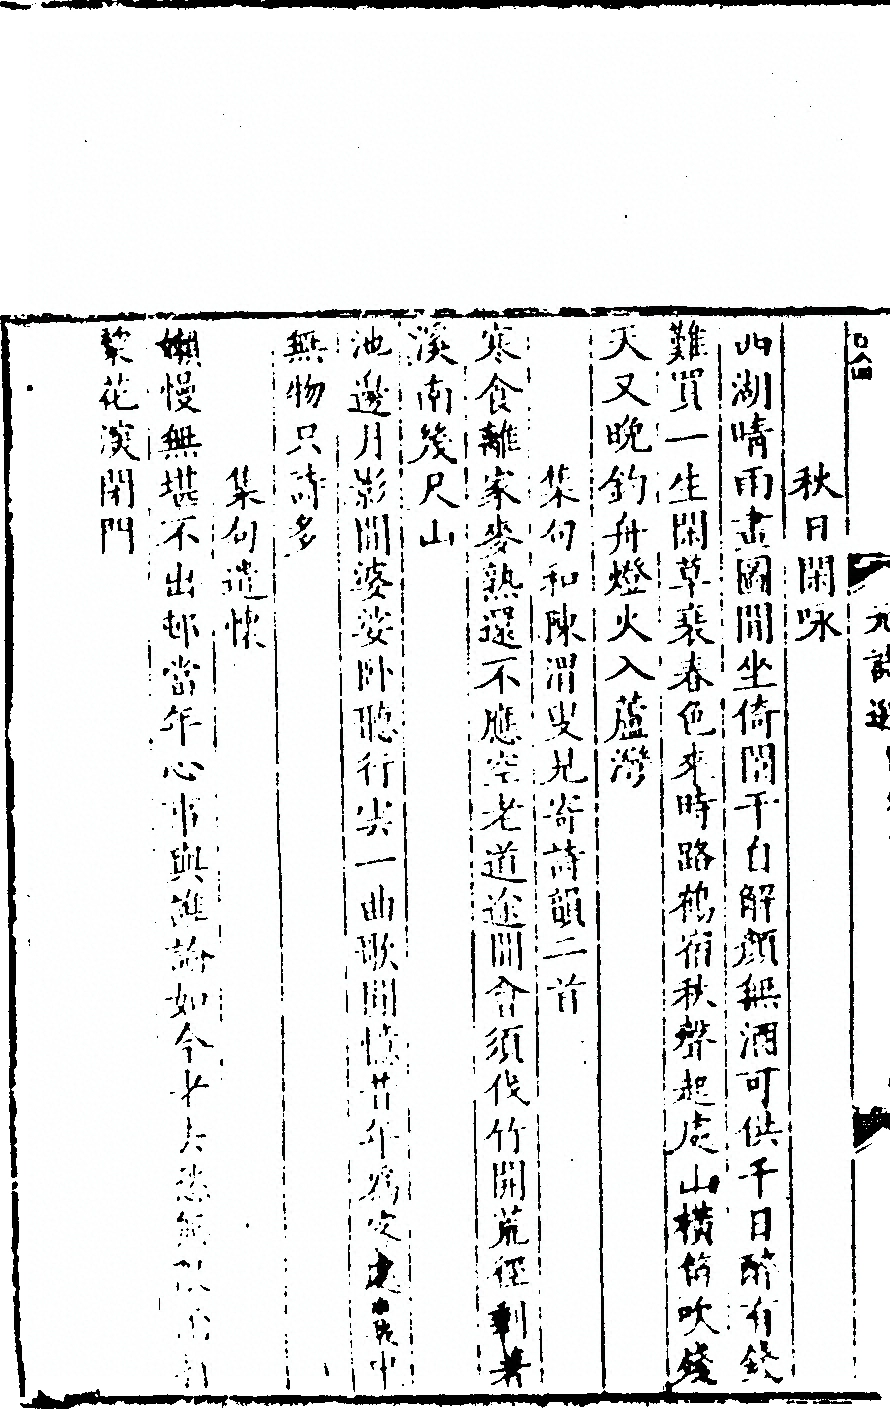 秋日閑咏
西湖晴雨畫圖間坐倚闌干自解顏無酒可供千日醉有錢
難買一生閑草裹春色來時路鶴宿秋聲起處山橫笛吹殘
天又晚釣舟燈火入蘆灣
集句和陳渭叟見寄詩韻二首
寒食離家麥熟還不應空老道途間會須伐竹開荒徑剩著
溪南幾尺山
池邊月影閒婆娑卧聽行雲一曲歌閒憶昔年為客處中
無物只詩多
集句遣懷
嬾慢無堪不出邨當年心事與誰論如今老去愁無
棃花深閉門